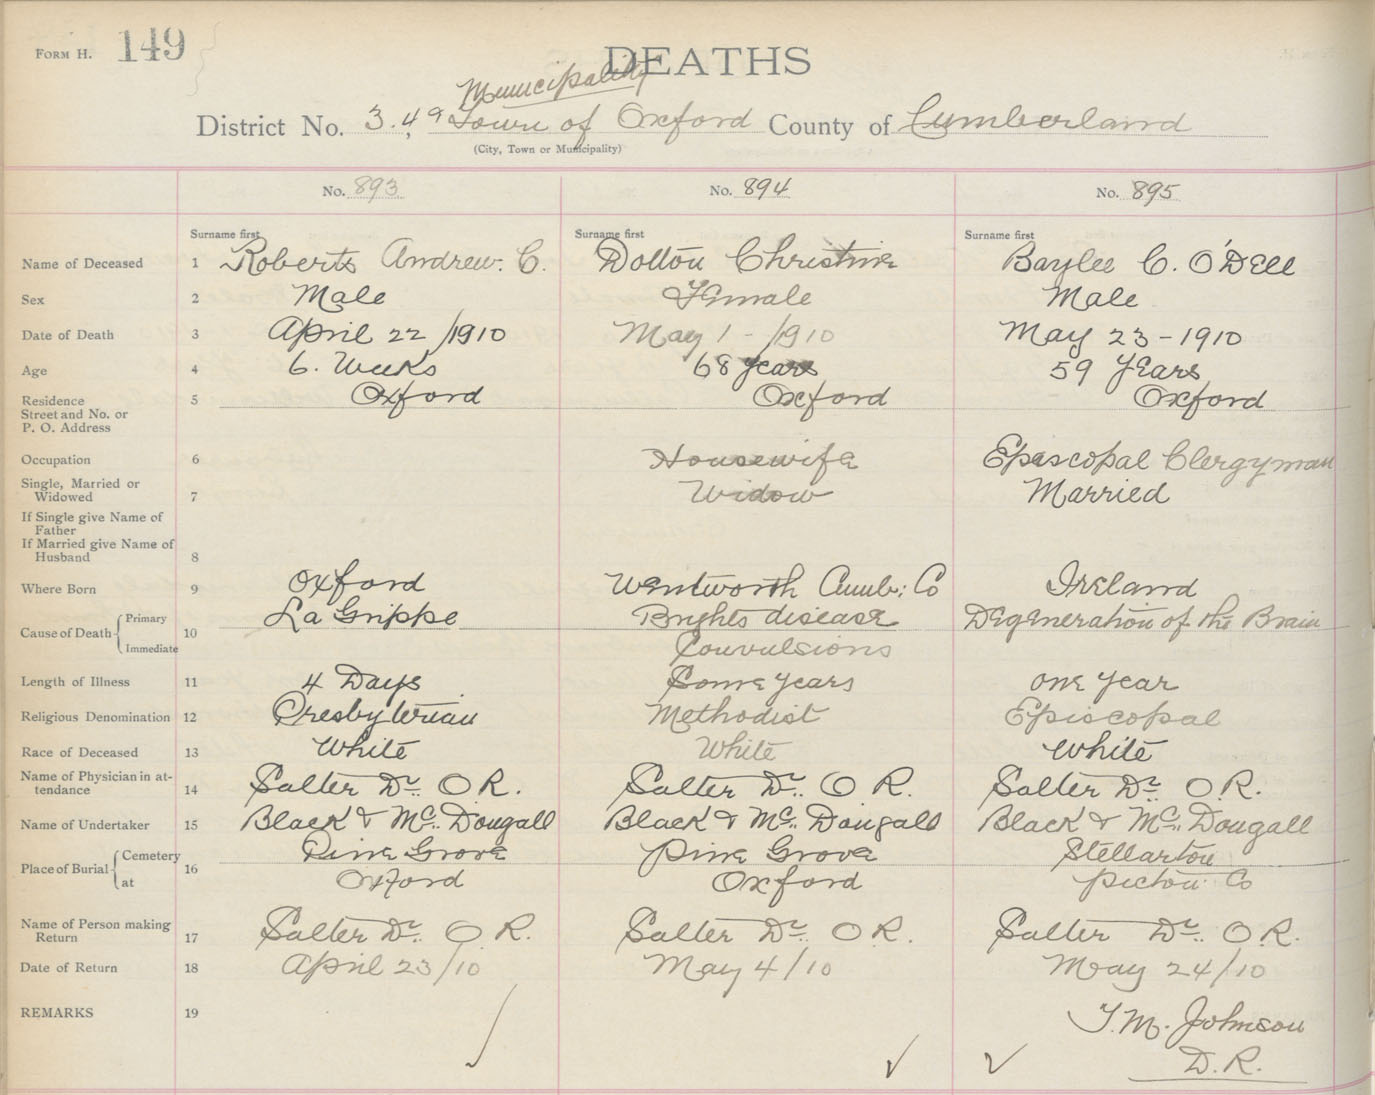 FORM H. 149
DEATHS
Municipality
District No. 3.4, 9 Town of Oxford County of Cumberland
(City, Town or Municipality)
No. 893 No. 894 No. 895
Surname first Surname first Surname first
Name of Deceased 1 Roberts Andrew. C. Dotton Christine Baylee C. O'Dell
Sex 2 Male Female Male
Date of Death 3 April 22/1910 May 1 - /1910 May 23 - 1910
Age 4 6. Weeks 68 years 59 Years
Residence 5 Oxford Oxford Oxford
Street and No. or
P. O. Address
Occupation 6 Housewife Episcopal Clergyman
Single, Married or
Widowed 7 Widow Married
If Single give Name of
Father
If Married give Name of
Husband 8
Where Born 9 Oxford Wentworth Cumb: Co Ireland
Cause of Death 10 Primary La Grippe Brights disease Degeneration of the Brain
Immediate Convulsions
Length of Illness 11 4 Days Some years one year
Religious Denomination 12 Presbyterian Methodist Episcopal
Race of Deceased 13 White White White
Name of Physician in at-
tendance 14 Salter Dr. O R. Salter Dr. O R. Salter Dr. O.R.
Name of Undertaker 15 Black & McDougall Black & McDougall Black & McDougall
Place of Burial 16 Cemetery Pine Grove Pine Grove Stellarton
at Oxford Oxford Pictou Co
Name of Person making
Return 17 Salter Dr. O. R. Salter Dr. O R. Salter Dr. O.R.
Date of Return 18 April 23/10 May 4/10 May 24/10
REMARKS 19 T. M. Johnson
D. R.